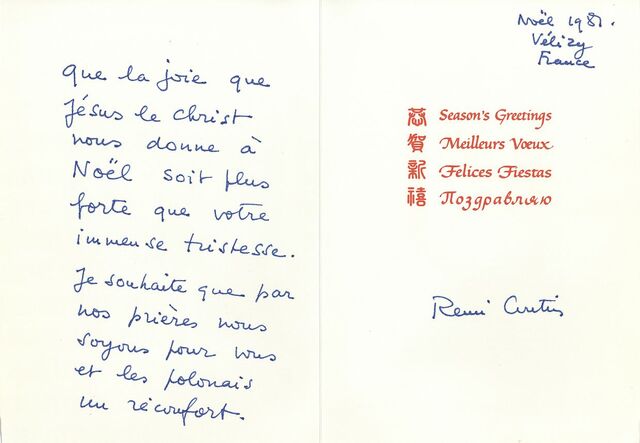 Que la joie que
Jésus le Christ
nous donne à
Noël soit plus
forte que votre
immense tristesse.
Je souhaite que par
nos prières nous
soyons pour vous
et les polonais
un réconfort.
Noël 1981.
Vélizy
France
恭 Season's Greetings
賀 Meilleurs Vœux
新 Felices Fiestas
禧 Поздравляю
Remi